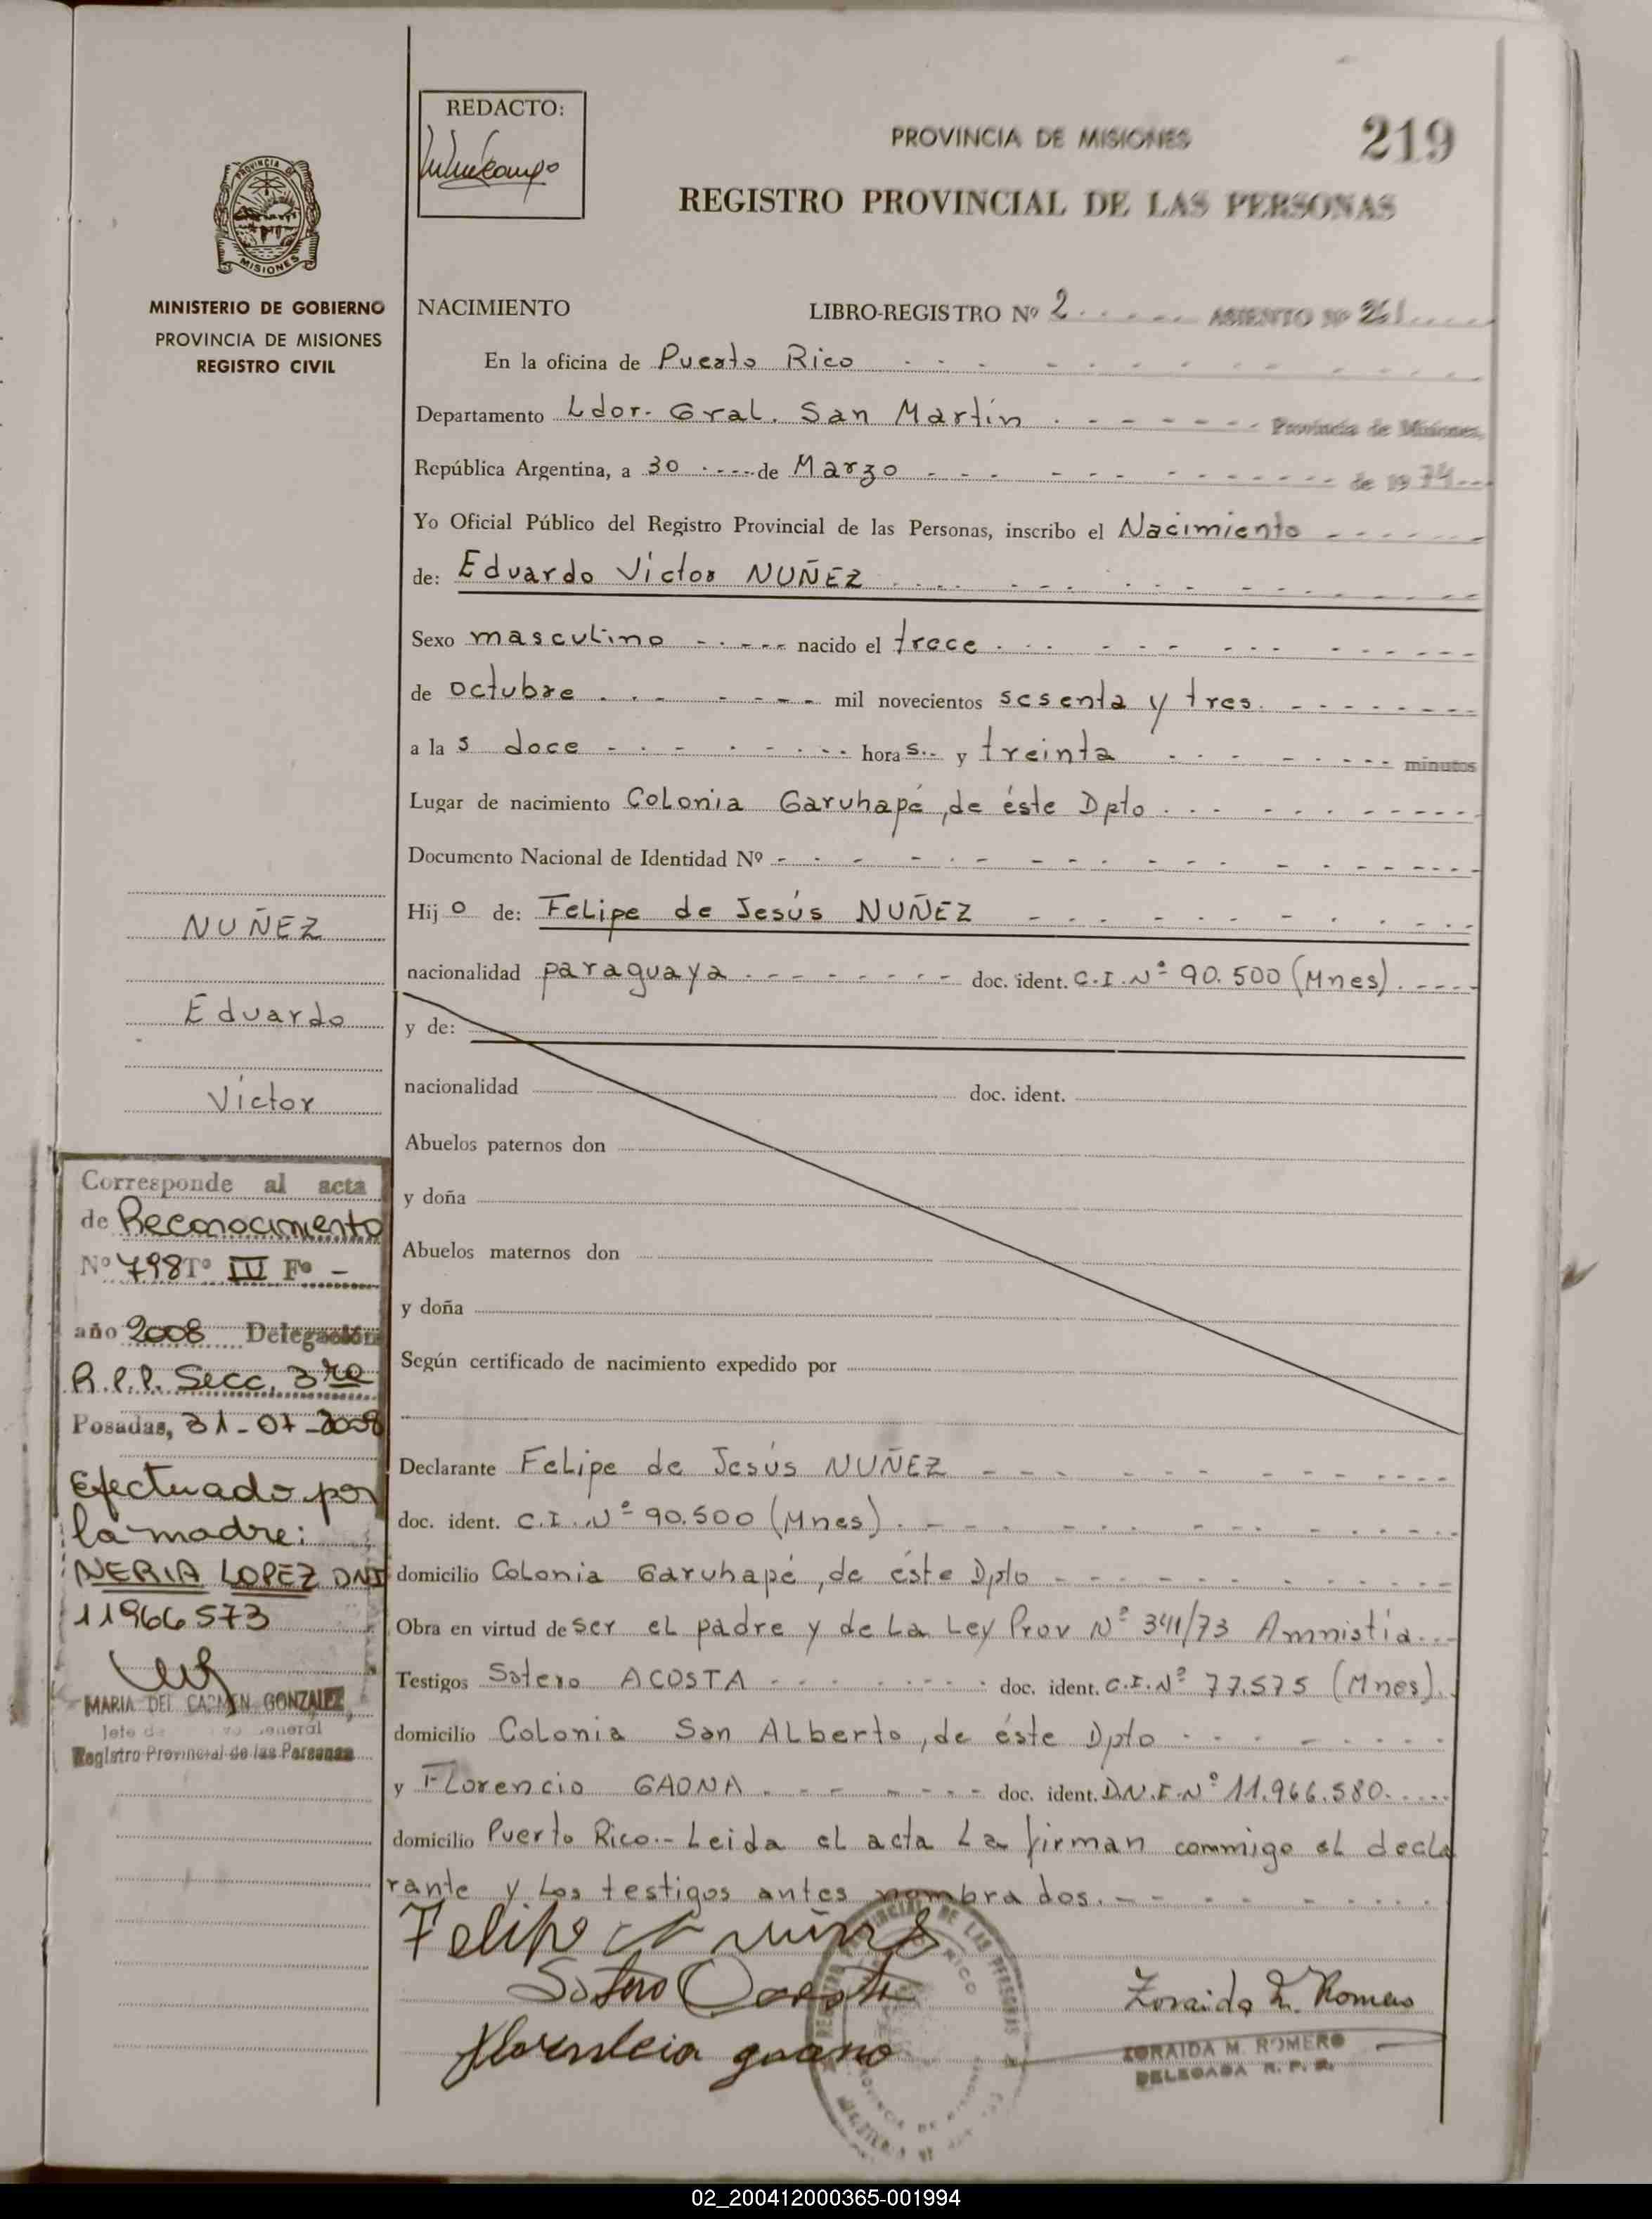 REDACTO:
PROVINCIA DE MISIONES
219
REGISTRO PROVINCIAL DE LAS PERSONAS
PROVINCIA DE
MISIONES
MINISTERIO DE GOBIERNO
PROVINCIA DE MISIONES
REGISTRO CIVIL
NACIMIENTO LIBRO-REGISTRO Nº 2 ASIENTO Nº 261
En la oficina de Puerto Rico
Departamento Ldor. Gral. San Martín Provincia de Misiones,
República Argentina, a 30 de Marzo de 1974
Yo Oficial Público del Registro Provincial de las Personas, inscribo el Nacimiento
de: Eduardo Victor NUÑEZ
Sexo masculino nacido el trece
de octubre mil novecientos sesenta y tres.
a la s doce hora s.- y treinta minutos
Lugar de nacimiento Colonia Garuhapé, de éste Dpto
Documento Nacional de Identidad Nº
Hij o de: Felipe de Jesús NUÑEZ
nacionalidad paraguaya doc. ident. C.I.Nº 90.500 (Mnes).
y de:
nacionalidad doc. ident.
Abuelos paternos don
y doña
Abuelos maternos don
y doña
Según certificado de nacimiento expedido por
Declarante Felipe de Jesús NUÑEZ
doc. ident. C.I.Nº 90.500 (Mnes).
domicilio Colonia Garuhapé, de éste Dpto
Obra en virtud de ser el padre y de La Ley Prov Nº 341/73 Amnistía
Testigos Sotero ACOSTA doc. ident. C.I.Nº 77.575 (Mnes).
domicilio Colonia San Alberto, de éste Dpto
y Florencio GAONA doc. ident. D.N.I.Nº 11.966.580.
domicilio Puerto Rico.- Leida el acta La firman commigo el decla
rante y Los testigos antes nombrados.
NUÑEZ
Eduardo
Victor
Corresponde al acta
de Reconocimiento
Nº 798 Tº IV Fº -
año 2008 Delegación
R.P.P. Secc. 3ra
Posadas, 31-07-2008
Efectuado por
la madre:
NERIA LOPEZ DNI
11966573
MARIA DEL CARMEN GONZALEZ
Jefe de
General
Registro Provincial de las Personas
Sotero Acosta
Zoraida M. Romero
ZORAIDA M. ROMERO
DELEGADA R. P. P.
02_200412000365-001994